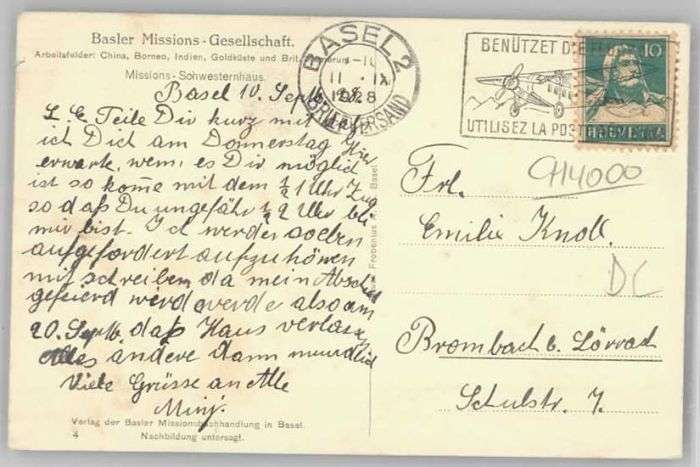 Basler Missions-Gesellschaft.
Arbeitsfelder: China, Borneo, Indien, Goldküste und Brit.
Missions-Schwesternhaus.
Basel 10. Sept. 28
L. E. Teile Dir kurz mit
ich Dich am Donnerstag
erwarte, wenn es Dir möglich
ist so kom̅e mit dem ½1 Uhr Zug
so daß Du ungefähr ½2 Uhr bei
mir bist. Ich werde soeben
aufgefordert aufzuhören
mit schreiben da mein Abschied
gefeierd werd werde also am
20. Sept. daß Haus verlassen
Alles andere dann mündlich
Viele Grüsse an Alle
Minj.
Verlag der Basler Missionsbuchhandlung in Basel.
4 Nachbildung untersagt.
Frobenius A.G. Basel
BASEL 2
11 IX
1928
BRIEFVERSAND
BENÜTZET DIE
UTILISEZ LA POSTE
10
HELVETIA
914000
Frl.
Emilie Knoll.
DC
Brombach b. Lörrach
Schulstr. 7.